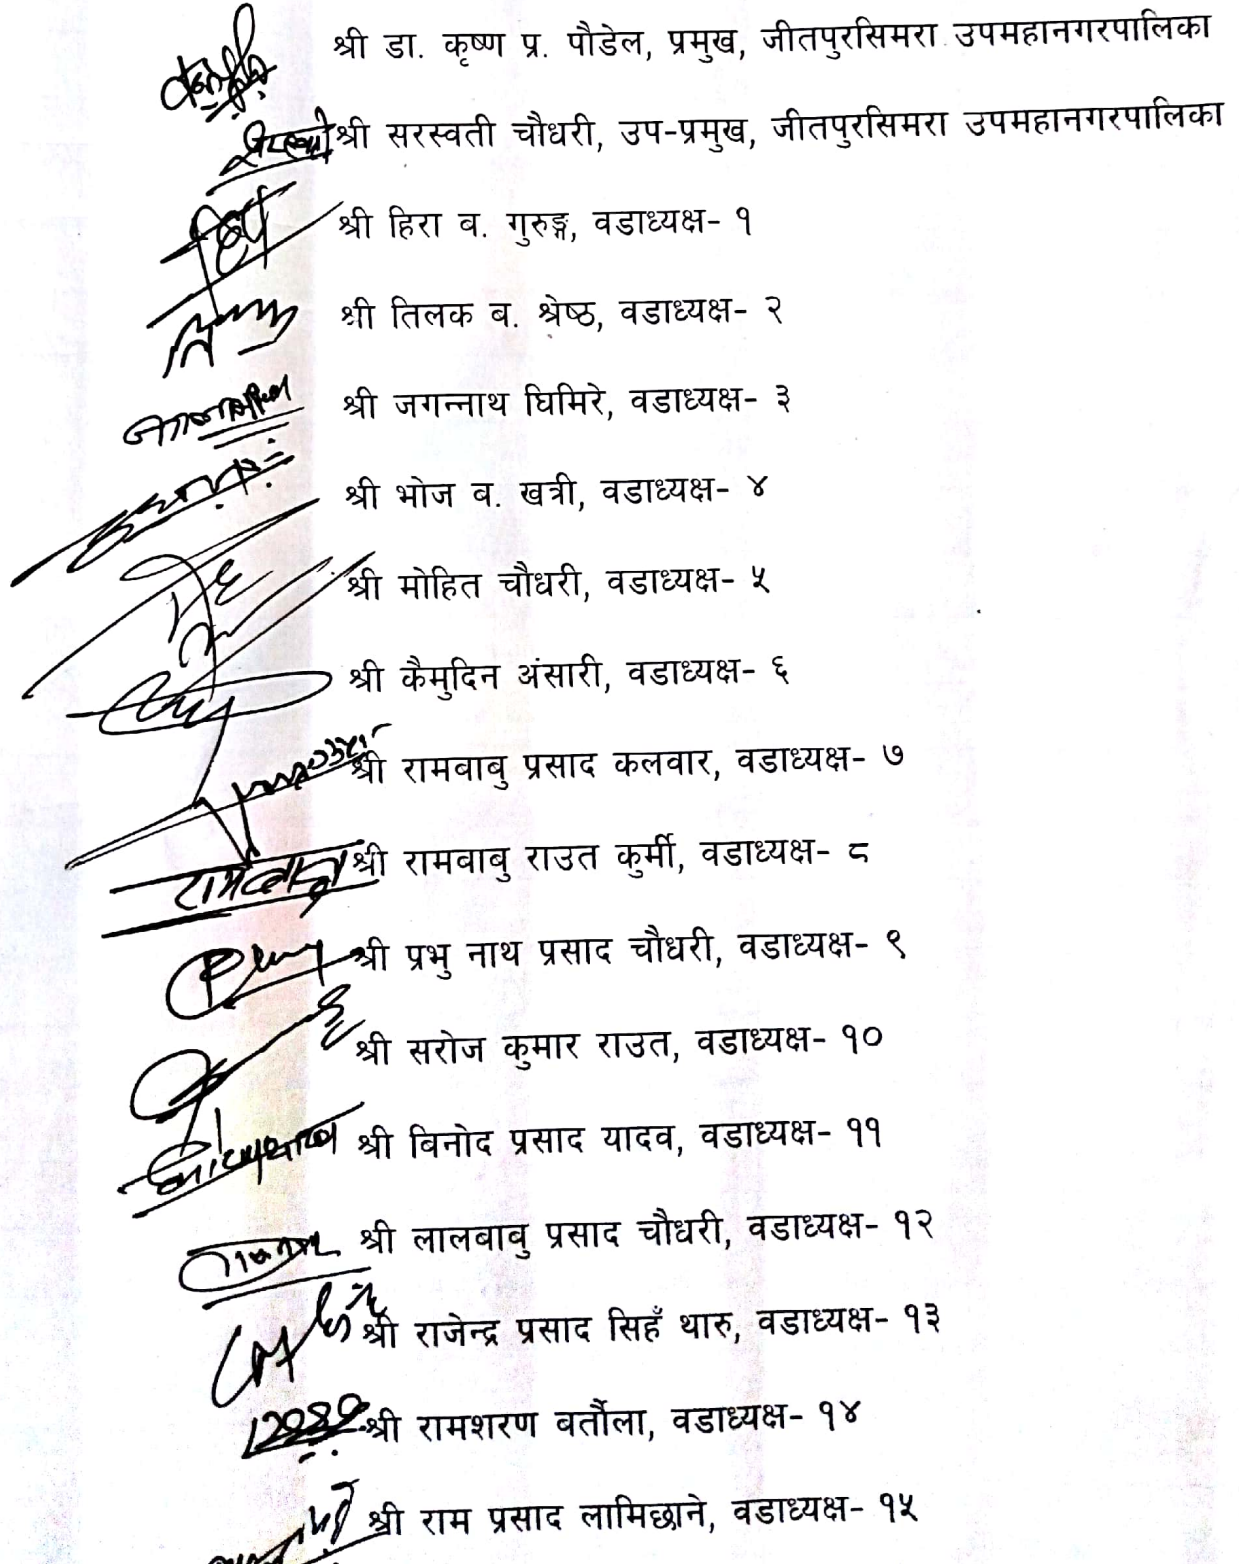 श्री डा. कृष्ण प्र. पौडेल, प्रमुख, जीतपुरसिमरा उपमहानगरपालिका
श्री सरस्वती चौधरी, उप-प्रमुख, जीतपुरसिमरा उपमहानगरपालिका
श्री हिरा ब. गुरुङ्ग, वडाध्यक्ष- १
श्री तिलक ब. श्रेष्ठ, वडाध्यक्ष- २
श्री जगन्नाथ घिमिरे, वडाध्यक्ष- ३
श्री भोज ब. खत्री, वडाध्यक्ष- ४
श्री मोहित चौधरी, वडाध्यक्ष- ५
श्री कैमुदिन अंसारी, वडाध्यक्ष- ६
श्री रामबाबु प्रसाद कलवार, वडाध्यक्ष- ७
रामबाबु श्री रामबाबु राउत कुर्मी, वडाध्यक्ष- ८
श्री प्रभु नाथ प्रसाद चौधरी, वडाध्यक्ष- ९
श्री सरोज कुमार राउत, वडाध्यक्ष- १०
श्री बिनोद प्रसाद यादव, वडाध्यक्ष- ११
श्री लालबाबु प्रसाद चौधरी, वडाध्यक्ष- १२
श्री राजेन्द्र प्रसाद सिहँ थारु, वडाध्यक्ष- १३
श्री रामशरण बर्तौला, वडाध्यक्ष- १४
श्री राम प्रसाद लामिछाने, वडाध्यक्ष- १५